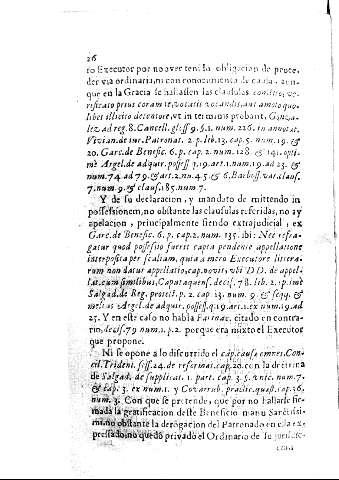 26
ro Executor por no aver teni lo obligacion de proce-
der via ordinaria, ni con conocimiento de causa, aun-
que en la Gracia se hallassen las clausulas constito, ve-
rificato prius coram te, vocatis vocandis, aut amoto quo-
libet illicito detentore, ut in terminis probant, Gonza-
lez ad reg. 8. Cancell. gloss. 9. §. 1. num. 226. in annotat.
Vivian. de iur. Patronat. 2. p. lib. 13. cap. 5. num. 19. &
20. Garc. de Benefic. 6. p. cap. 2. num. 128. & 141. opti-
mè Argel. de adquir. possess. q. 19. art. 1. num. 19. ad 23. &
num. 74 ad 79. & art. 2. nu. 4. 5. & 6. Barbos. var. claus.
7. num. 9. & claus. 185. num 7.
Y de su declaracion, y mandato de mittendo in
possessionem, no obstante las clausulas referidas, no ay
apelacion, principalmente siendo extrajudicial, ex
Garc. de Benefic. 6. p. cap. 2. num. 135. ibi: Nec refra-
gatur quod possessio fueris capta pendente appellatione
interposita per scaliam, quia a mero Executore littera-
rum non datur appellatio, cap. novit, ubi DD. de appel-
lat. cum similibus, Caputaquens. decis. 78. lib. 2. ip. inst
Salgad. de Reg. protect. p. 2. cap 13. num. 9. & seqq. &
melius Argel. de adquir. possess. q. 19. art. 1. ex num. 19. ad
25. Y en este caso no habla Farinac. citado en contra-
rio, decis. 79 num. 1. p. 2. porque era mixto el Executor
que propone.
Ni se opone a lo discurrido el cap. causæ omnes, Con-
cil. Trident. sess. 24. de reformat. cap. 20. con la doctrina
de Salgad. de supplicat. 1. part. cap. 3. §. 2. num. 7.
& cap. 3. ex num. 1. y Covarrub. practic. quæst. cap. 26,
num. 3. Con que se pretende, que por no hallarse fir-
mada la gratificacion deste Beneficio manu Sanctissi-
mi, no obstante la derogacion del Patronado en ella ex-
pressado, no quedò privado el Ordinario de su jurisdic-